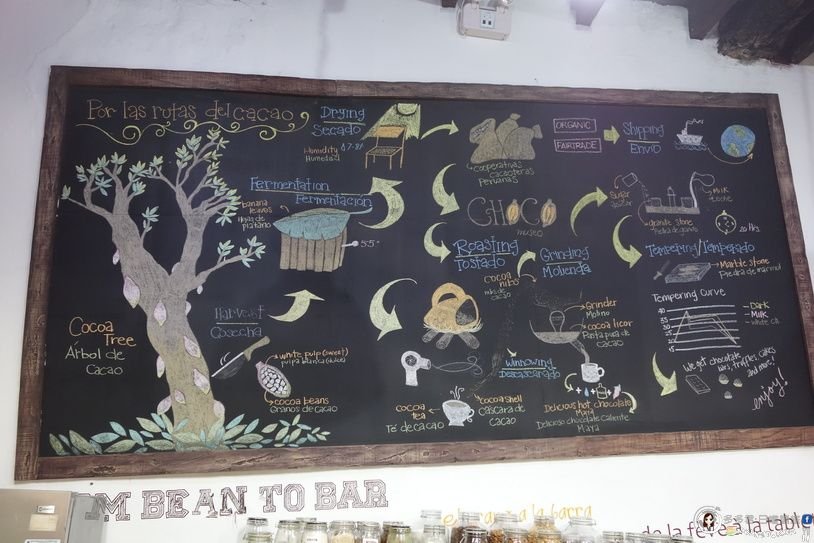 Por las rutas del cacao
Drying
Secado
Humidity
Humedad
Fermentation
Fermentación
banana
leaves
Hojas de
platano
55°
Harvest
Cosecha
Cocoa
Tree
Árbol de
Cacao
white pulp (sweet)
pulpa blanca (dulce)
cocoa beans
Granos de cacao
cooperativas
cacaoteras
Peruanas
ORGANIC
FAIRTRADE
Shipping
Envio
CHOCO
museo
Roasting
Tostado
Winnowing
Descascarado
cocoa
tea
Té de cacao
cocoa shell
Cáscara de
cacao
Grinding
Molienda
cocoa
nibs
nibs de
cacao
Grinder
Molino
cocoa licor
Pasta pura de
cacao
Delicious hot chocolate
Maya
Delicioso chocolate caliente
Maya
Sugar
azúcar
Milk
Leche
granite stone
Piedra de granito
20 Hrs.
Tempering/Temperado
Marble stone
Piedra de marmol
Tempering Curve
Dark
Milk
White ch.
We get chocolate
bars, truffles, cakes
and more!
enjoy!
OM BEAN TO BAR
a la barra
de la fève à la table